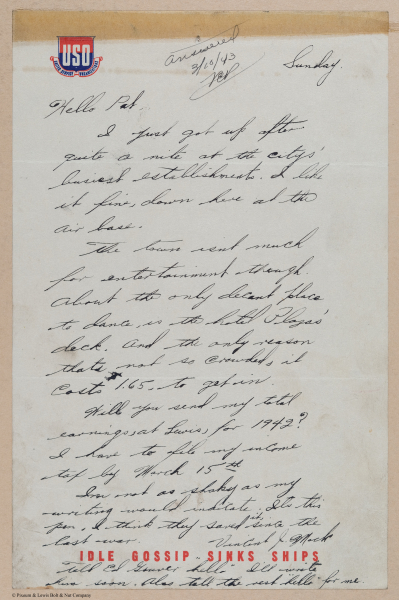 USO
answered
3/10/43
Sunday.
Hello Pat.
I just got up after
quite a nite at the citys'
busiest establishments. I like
it fine, down here at the
air base.
The town isnt much
for entertainment though.
About the only decent place
to dance, is the hotel Plaza's
deck. And the only reason
thats not so crowded, it
costs 1.65, to get in.
Will you send my total
earnings, at Lewis, for 1942?
I have to file my income
tax by March 15th
I'm not as shaky as my
writing would indicate. It's this
pen. I think they saved it since the
last war.
Vincent J. Mock
IDLE GOSSIP SINKS SHIPS
Tell Ed "hello" I'll write
him soon. Also tell the rest "hello" for me.
© Pitanin & Lewis Bolt & Nut Company